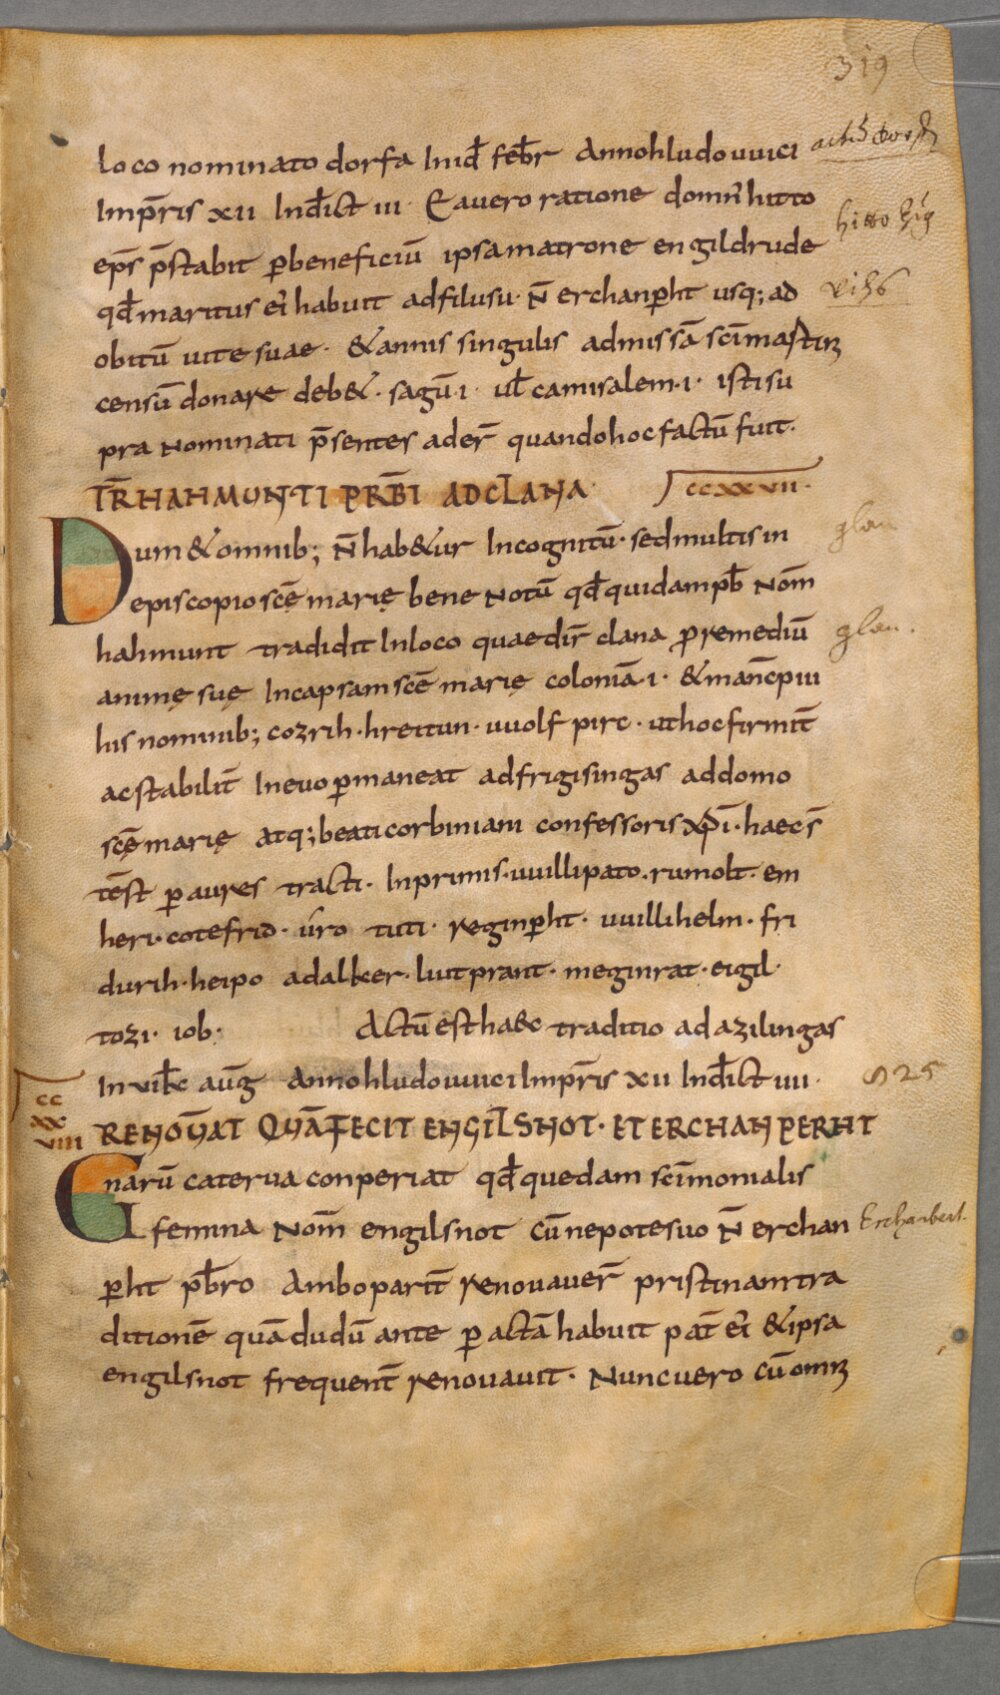 319
loco nominato dorfa Inid̄ feb̄r Annohludouuici
Imp̄ris xii Ind̄ict iii · Ea uero ratione domn̄ hitto
hitto
ep̄s p̄stabit ꝑbeneficiū ipsa matrone engildrude
qd̄ maritus ei̅ habuit ad filusu · N̄ erchanꝑht usq; ad
obitū uite suae · & annis singulis ad missā sc̄i martiꝫ
censū donare deb& · sagū · i · ul̄ camisalem · i · isti su
pra Nominati p̄sentes ader̄ quando hoc factū fuit ·
TR̄ HAHMUNTI PRB̄I AD CLANA · ccxxvii ·
Dum & omnib; N̄ hab&ur Incognitū · sed multis in
glan
episcopio sc̄ę marię bene Notū qd̄ quidam pb̄ Nom̄
hahmunt tradidit In loco quae dir̄ clana ꝓ remediū
glan.
animę suę In capsam sc̄ę marię coloniā · i · & manc̄piu
his nominib; cozrih · hreitun · uuolf pirc · ut hoc firmit̄
ac stabilit̄ In euo ꝑmaneat ad frigisingas ad domo
sc̄ę marię atq; beati corbiniani confessoris xp̄i · haec s̄
tēst ꝑ aures tracti · In primis · uuillipato · rumolt · em
heri · cotefrid · un̄ro tuti · reginꝑht · uuillihelm · fri
durih · heipo adalker · liutprant · meginrat · eigil ·
tozi · iob · Actū est haec traditio ad azilingas
In vik̄ł aūg Anno hludouuici Imp̄ris xii Ind̄ict iiii ·
S 25
cc
xx
viii
RENOUAT̄ QUĀ FECIT ENGILSNOT · ET ERCHANPERHT
Gnarū caterua conperiat qd̄ quedam sc̄imonialis
femina Nom̄ engilsnot cū nepote suo N̄ erchan
Erchanbert.
ꝑht pb̄ro Ambo parit̄ renouauer̄ pristinam tra
ditionē quā dudū ante ꝑ actā habuit pat̄ ei̅ & ipsa
engilsnot frequent̄ renouauit · Nunc uero cū omīꝫ